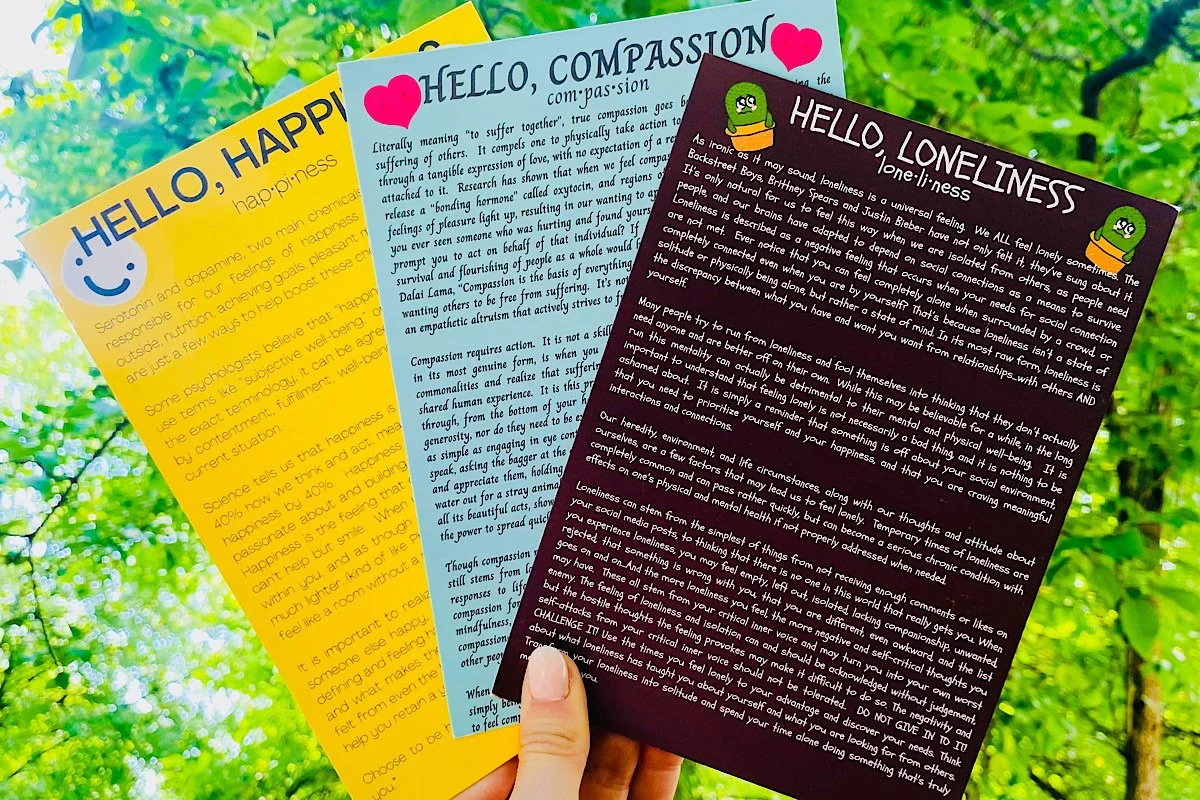 HELLO, HAPPI
hap·pi·ness
Serotonin and dopamine, two main chemicals
responsible for our feelings of happiness
outside, nutrition, achieving goals, pleasant
are just a few ways to help boost these
Some psychologists believe that "happin
use terms like "subjective well-being,"
the exact terminology, it can be agre
by contentment, fulfillment, well-being
current situation.
Science tells us that happiness is
40% how we think and act, mea
happiness by 40%
passionate about and building
Happiness is the feeling that
can't help but smile. When
within you, and as though
much lighter (kind of like
feel like a room without a
It is important to realiz
someone else happy.
defining and feeling
and what makes th
felt from even the
help you retain a
Choose to be
you.
HELLO, COMPASSION
com·pas·sion
Literally meaning "to suffer together", true compassion goes the
suffering of others. It compels one to physically take action to
through a tangible expression of love, with no expectation of a
attached to it. Research has shown that when we feel compas
release a "bonding hormone" called oxytocin, and regions o
feelings of pleasure light up, resulting in our wanting to
you ever seen someone who was hurting and found yours
prompt you to act on behalf of that individual? If
survival and flourishing of people as a whole would
Dalai Lama, "Compassion is the basis of everything
wanting others to be free from suffering. It's no
an empathetic altruism that actively strives to f
Compassion requires action. It is not a skill
in its most genuine form, is when you
commonalities and realize that sufferin
shared human experience. It is this p
through, from the bottom of your h
generosity, nor do they need to be e
as simple as engaging in eye con
speak, asking the bagger at the
and appreciate them, holding
water out for a stray anima
all its beautiful acts, show
the power to spread quic
Though compassion
still stems from lo
responses to life
compassion for
mindfulness,
compassion
other peo
When
simply bein
to feel comp
HELLO, LONELINESS
lone·li·ness
As ironic as it may sound, loneliness is a universal feeling. We ALL feel lonely sometimes. The
Backstreet Boys, Britney Spears and Justin Bieber have not only felt it, they've sung about it.
It's only natural for us to feel this way when we are isolated from others, as people need
people, and our brains have adapted to depend on social connections as a means to survive.
Loneliness is described as a negative feeling that occurs when your needs for social connection
are not met. Ever notice that you can feel completely alone when surrounded by a crowd, or
completely connected even when you are by yourself? That's because loneliness isn't a state of
solitude or physically being alone but rather a state of mind. In its most raw form, loneliness is
the discrepancy between what you have and want you want from relationships...with others AND
yourself.
Many people try to run from loneliness and fool themselves into thinking that they don't actually
need anyone and are better off on their own. While this may be believable for a while, in the long
run this mentality can actually be detrimental to their mental and physical well-being. It is
important to understand that feeling lonely is not necessarily a bad thing, and it is nothing to be
ashamed about. It is simply a reminder that something is off about your social environment,
that you need to prioritize yourself and your happiness, and that you are craving meaningful
interactions and connections.
Our heredity, environment, and life circumstances, along with our thoughts and attitude about
ourselves, are a few factors that may lead us to feel lonely. Temporary times of loneliness are
completely common and can pass rather quickly, but can become a serious chronic condition with
effects on one's physical and mental health if not properly addressed when needed.
Loneliness can stem from the simplest of things from not receiving enough comments or likes on
your social media posts, to thinking that there is no one in this world that really gets you. When
you experience loneliness, you may feel empty, left out, isolated, lacking companionship, unwanted,
rejected, that something is wrong with you, that you are different, even awkward, and the list
goes on and on...And the more loneliness you feel, the more negative and self-critical thoughts you
may have. These all stem from your critical inner voice and may turn you into your own worst
enemy. The feeling of loneliness and isolation can and should be acknowledged without judgement,
but the hostile thoughts the feeling provokes may make it difficult to do so. The negativity and
self-attacks from your critical inner voice should not be tolerated. DO NOT GIVE IN TO IT!
CHALLENGE IT! Use the times you feel lonely to your advantage and discover your needs. Think
about what loneliness has taught you about yourself and what you are looking for from others.
your loneliness into solitude and spend your time alone doing something that's truly
you.